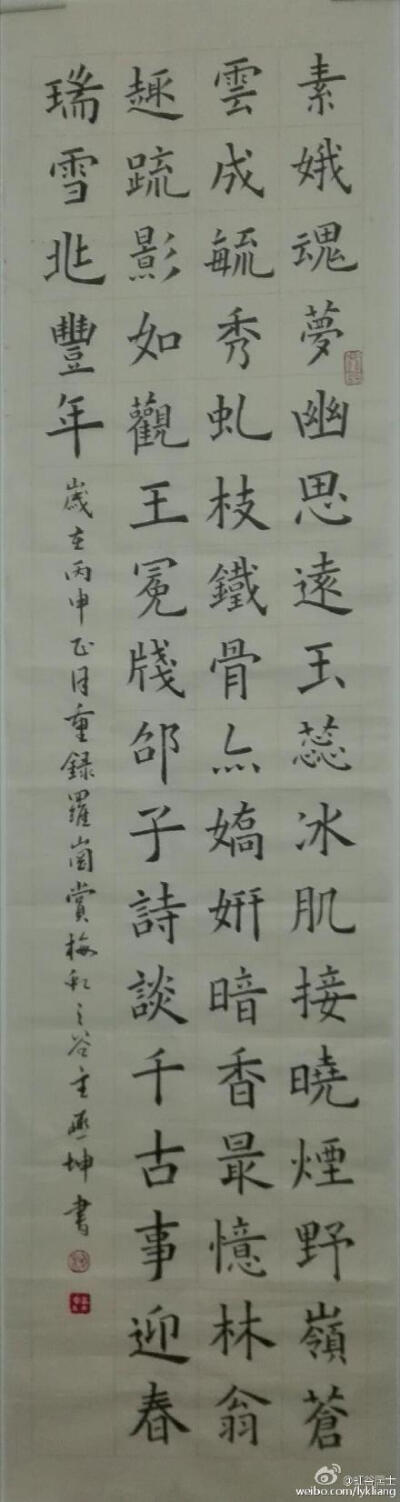 素娥魂夢幽思遠玉蕊冰肌接曉煙野嶺蒼
雲成毓秀虬枝鐵骨亦嬌妍暗香最憶林翁
趣疏影如觀王冕牋邵子詩談千古事迎春
瑞雪兆豐年
歲在丙申正月重録羅崗賞梅虹之谷主坤書
@虹谷居士
weibo.com/lykliang